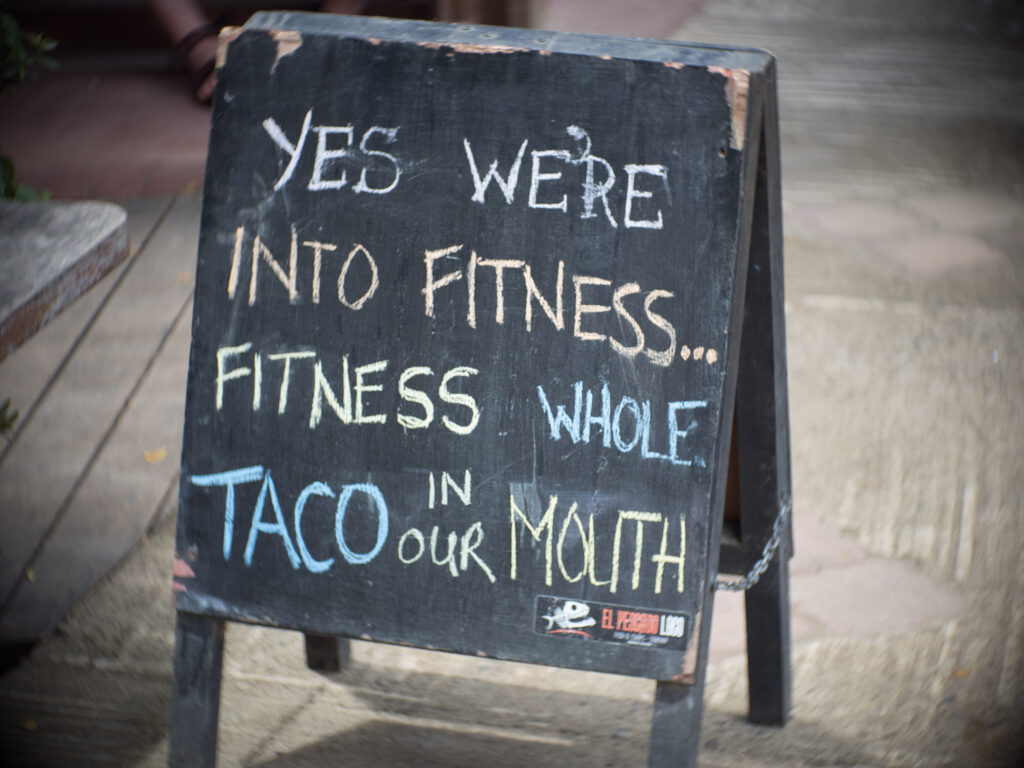 YES WE'RE
INTO FITNESS...
FITNESS WHOLE
TACO IN OUR MOUTH
EL PESCADO LOCO